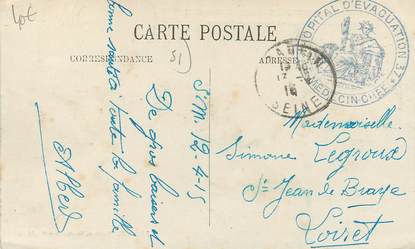 40€
CARTE POSTALE
CORRESPONDANCE
ADRESSE
51)
HOPITAL D'EVACUATION
MEDECIN CHEF
15
SEINE
S.M. 12-4-15
De gros baisers et
bonne santé à toute la famille
Albert
Mademoiselle
Simone Legroux
St Jean de Braye
Loiret